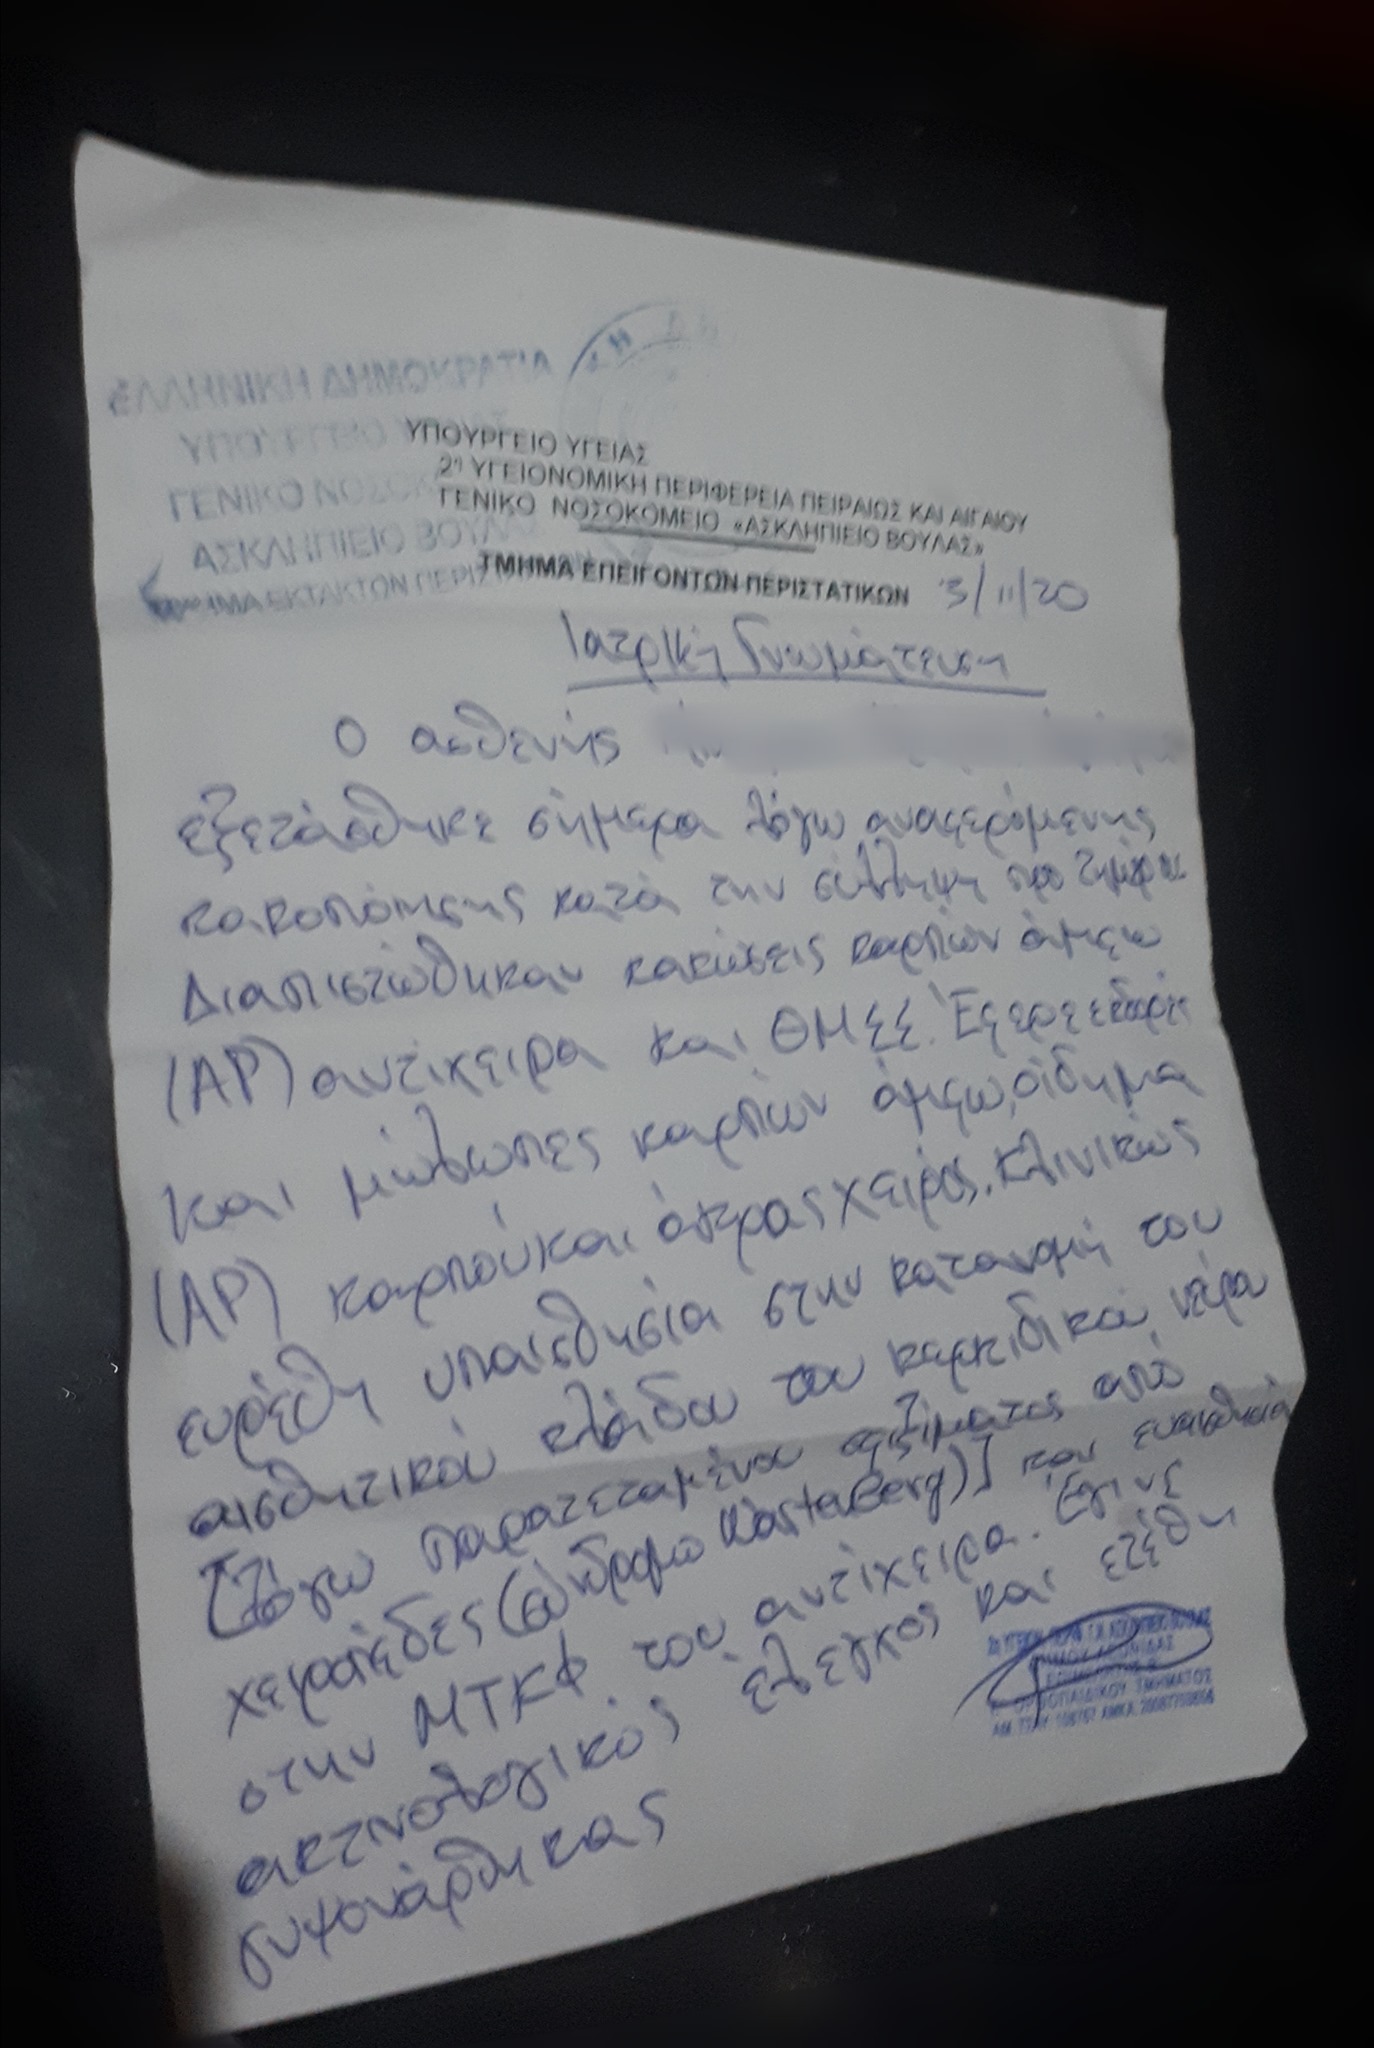 ΕΛΛΗΝΙΚΗ ΔΗΜΟΚΡΑΤΙΑ
ΥΠΟΥΡΓΕΙΟ
ΓΕΝΙΚΟ
ΑΣΚΛΗΠΙΕΙΟ ΒΟΥΛΑ
ΕΚΤΑΚΤΩΝ
ΥΠΟΥΡΓΕΙΟ ΥΓΕΙΑΣ
2η ΥΓΕΙΟΝΟΜΙΚΗ ΠΕΡΙΦΕΡΕΙΑ ΠΕΙΡΑΙΩΣ ΚΑΙ ΑΙΓΑΙΟΥ
ΓΕΝΙΚΟ ΝΟΣΟΚΟΜΕΙΟ «ΑΣΚΛΗΠΙΕΙΟ ΒΟΥΛΑΣ»
ΤΜΗΜΑ ΕΠΕΙΓΟΝΤΩΝ ΠΕΡΙΣΤΑΤΙΚΩΝ 3/11/20
Ιατρική Γνωμάτευση
Ο ασθενής
εξετάσθηκε σήμερα λόγω αναφερόμενης
κακοποίησης κατά την σύλληψη προ
Διαπιστώθηκαν κακώσεις καρπών άμφω
(ΑΡ) αντίχειρα και ΘΜΣΣ.
και μώλωπες καρπών άμφω, οίδημα
(ΑΡ) καρπού και άκρας χειρός. Κλινικώς
ευρέθη υπαισθησία στην κατανομή του
αισθητικού κλάδου του κερκιδικού νεύρου
[λόγω παρατεταμένου σφιξίματος από
χειροπέδες (σύνδρομο Wartenberg)] και ευαισθησία
στην ΜΤΚΦ του αντίχειρα. Έγινε
ακτινολογικός έλεγχος και ετέθη
ΟΡΘΟΠΑΙΔΙΚΟΥ ΤΜΗΜΑΤΟΣ